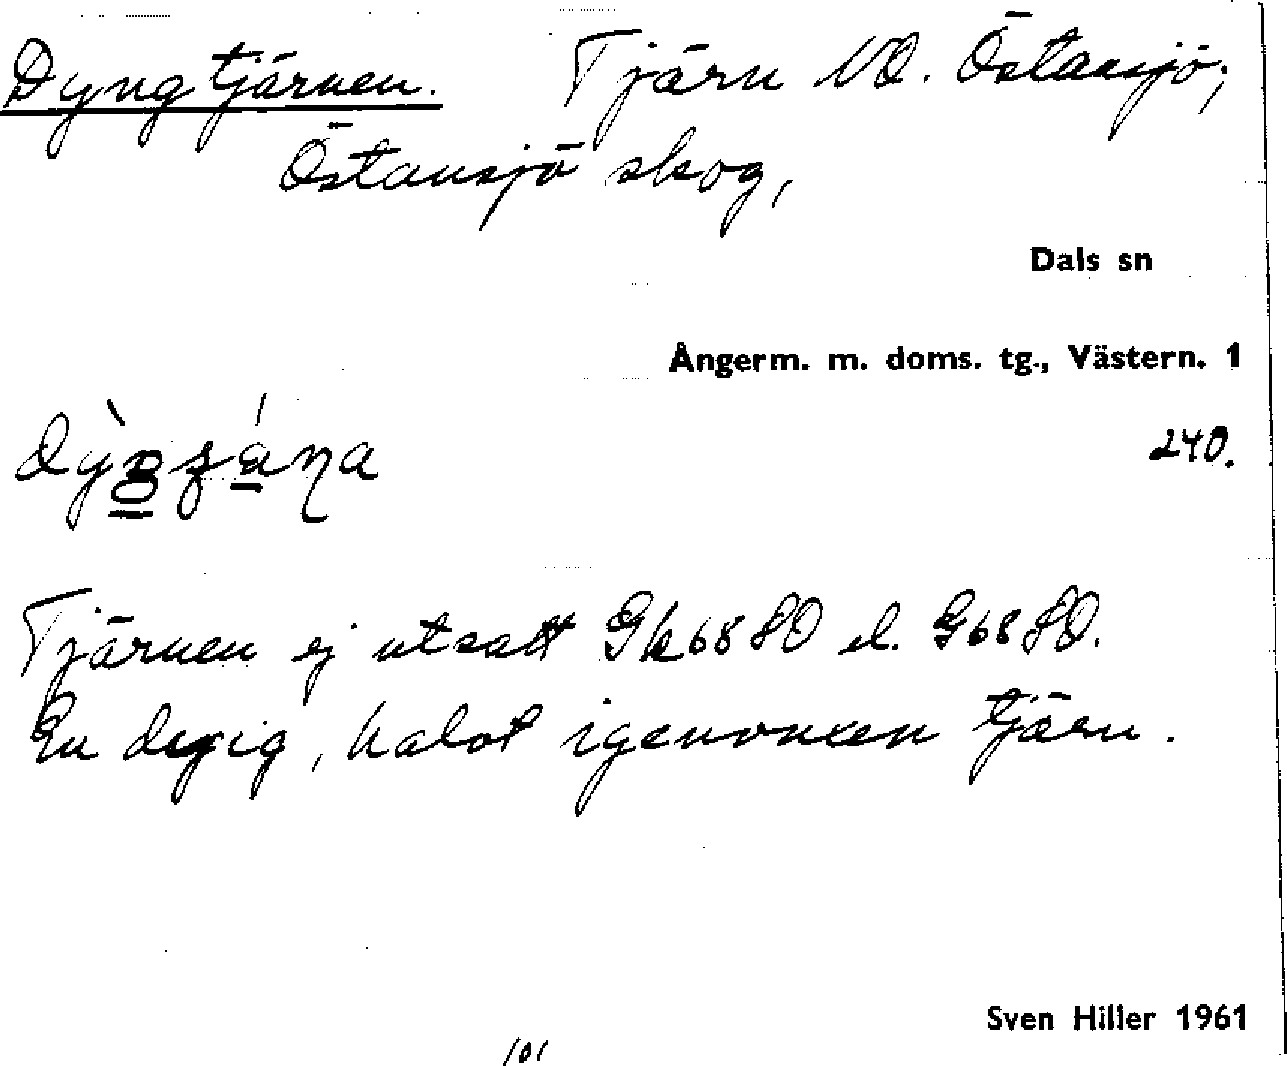 Dyngtjärnen. Tjärn NO. Östansjö;
Östansjö skog,
Dals sn
Ångerm. m. doms. tg., Västern. 1
240.
Tjärnen ej utsatt Gk 68 SO el. G 68 SO.
En dyig, halvt igenvuxen tjärn.
Sven Hiller 1961
101